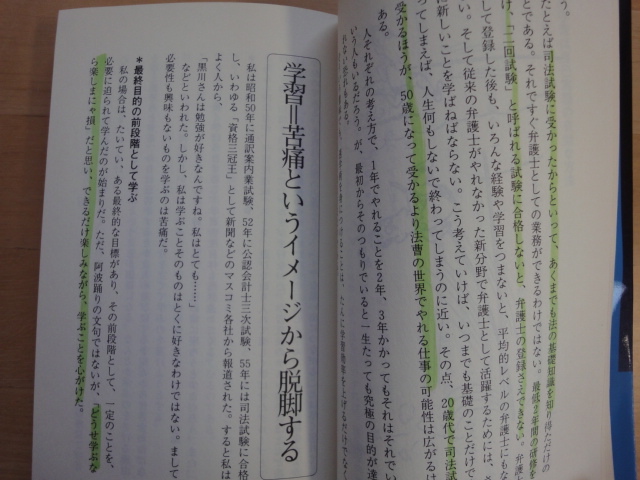 う。
たとえば司法試験に受かったからといって、あくまでも法の基礎知識を知り得ただけの
とである。それですぐ弁護士としての業務ができるわけではない。最低2年間の研修を
け、「二回試験」と呼ばれる試験に合格しないと、弁護士の登録さえできない。弁護士
して登録した後も、いろんな経験や学習をつまないと、平均的レベルの弁護士にもな
い。そして従来の弁護士がやれなかった新分野で弁護士として活躍するためには、
に新しいことを学ばねばならない。こう考えていけば、いつまでも基礎のことだけで
ってしまえば、人生何もしないで終わってしまうのに近い。その点、20歳代で司法試
受かるほうが、50歳になって受かるより法曹の世界でやれる仕事の可能性は広がるは
ある。
人それぞれの考え方で、1年でやれることを2年、3年かかってもそれはそれでい
いう人もいるだろう。が、最初からそのつもりでいると一生たっても究極の目的が達
れない恐れもある。
学習＝苦痛というイメージから脱脚する
私は昭和50年に通訳案内業試験、52年に公認会計士三次試験、55年には司法試験に合格
し、いわゆる「資格三冠王」として新聞などのマスコミ各社から報道された。すると私は
よく人から、
「黒川さんは勉強が好きなんですね。私はとても……」
などといわれた。しかし、私は学ぶことそのものはとくに好きなわけではない。まして
必要性も興味もないものを学ぶのは苦痛だ。
＊最終目的の前段階として学ぶ
私の場合は、たいてい、ある最終的な目標があり、その前段階として、一定のことを、
必要に迫られて学んだのが始まりだ。ただ、阿波踊りの文句ではないが、「どうせ学ぶな
ら楽しまにゃ損」だと思い、できるだけ楽しみながら、学ぶことを心がけた。